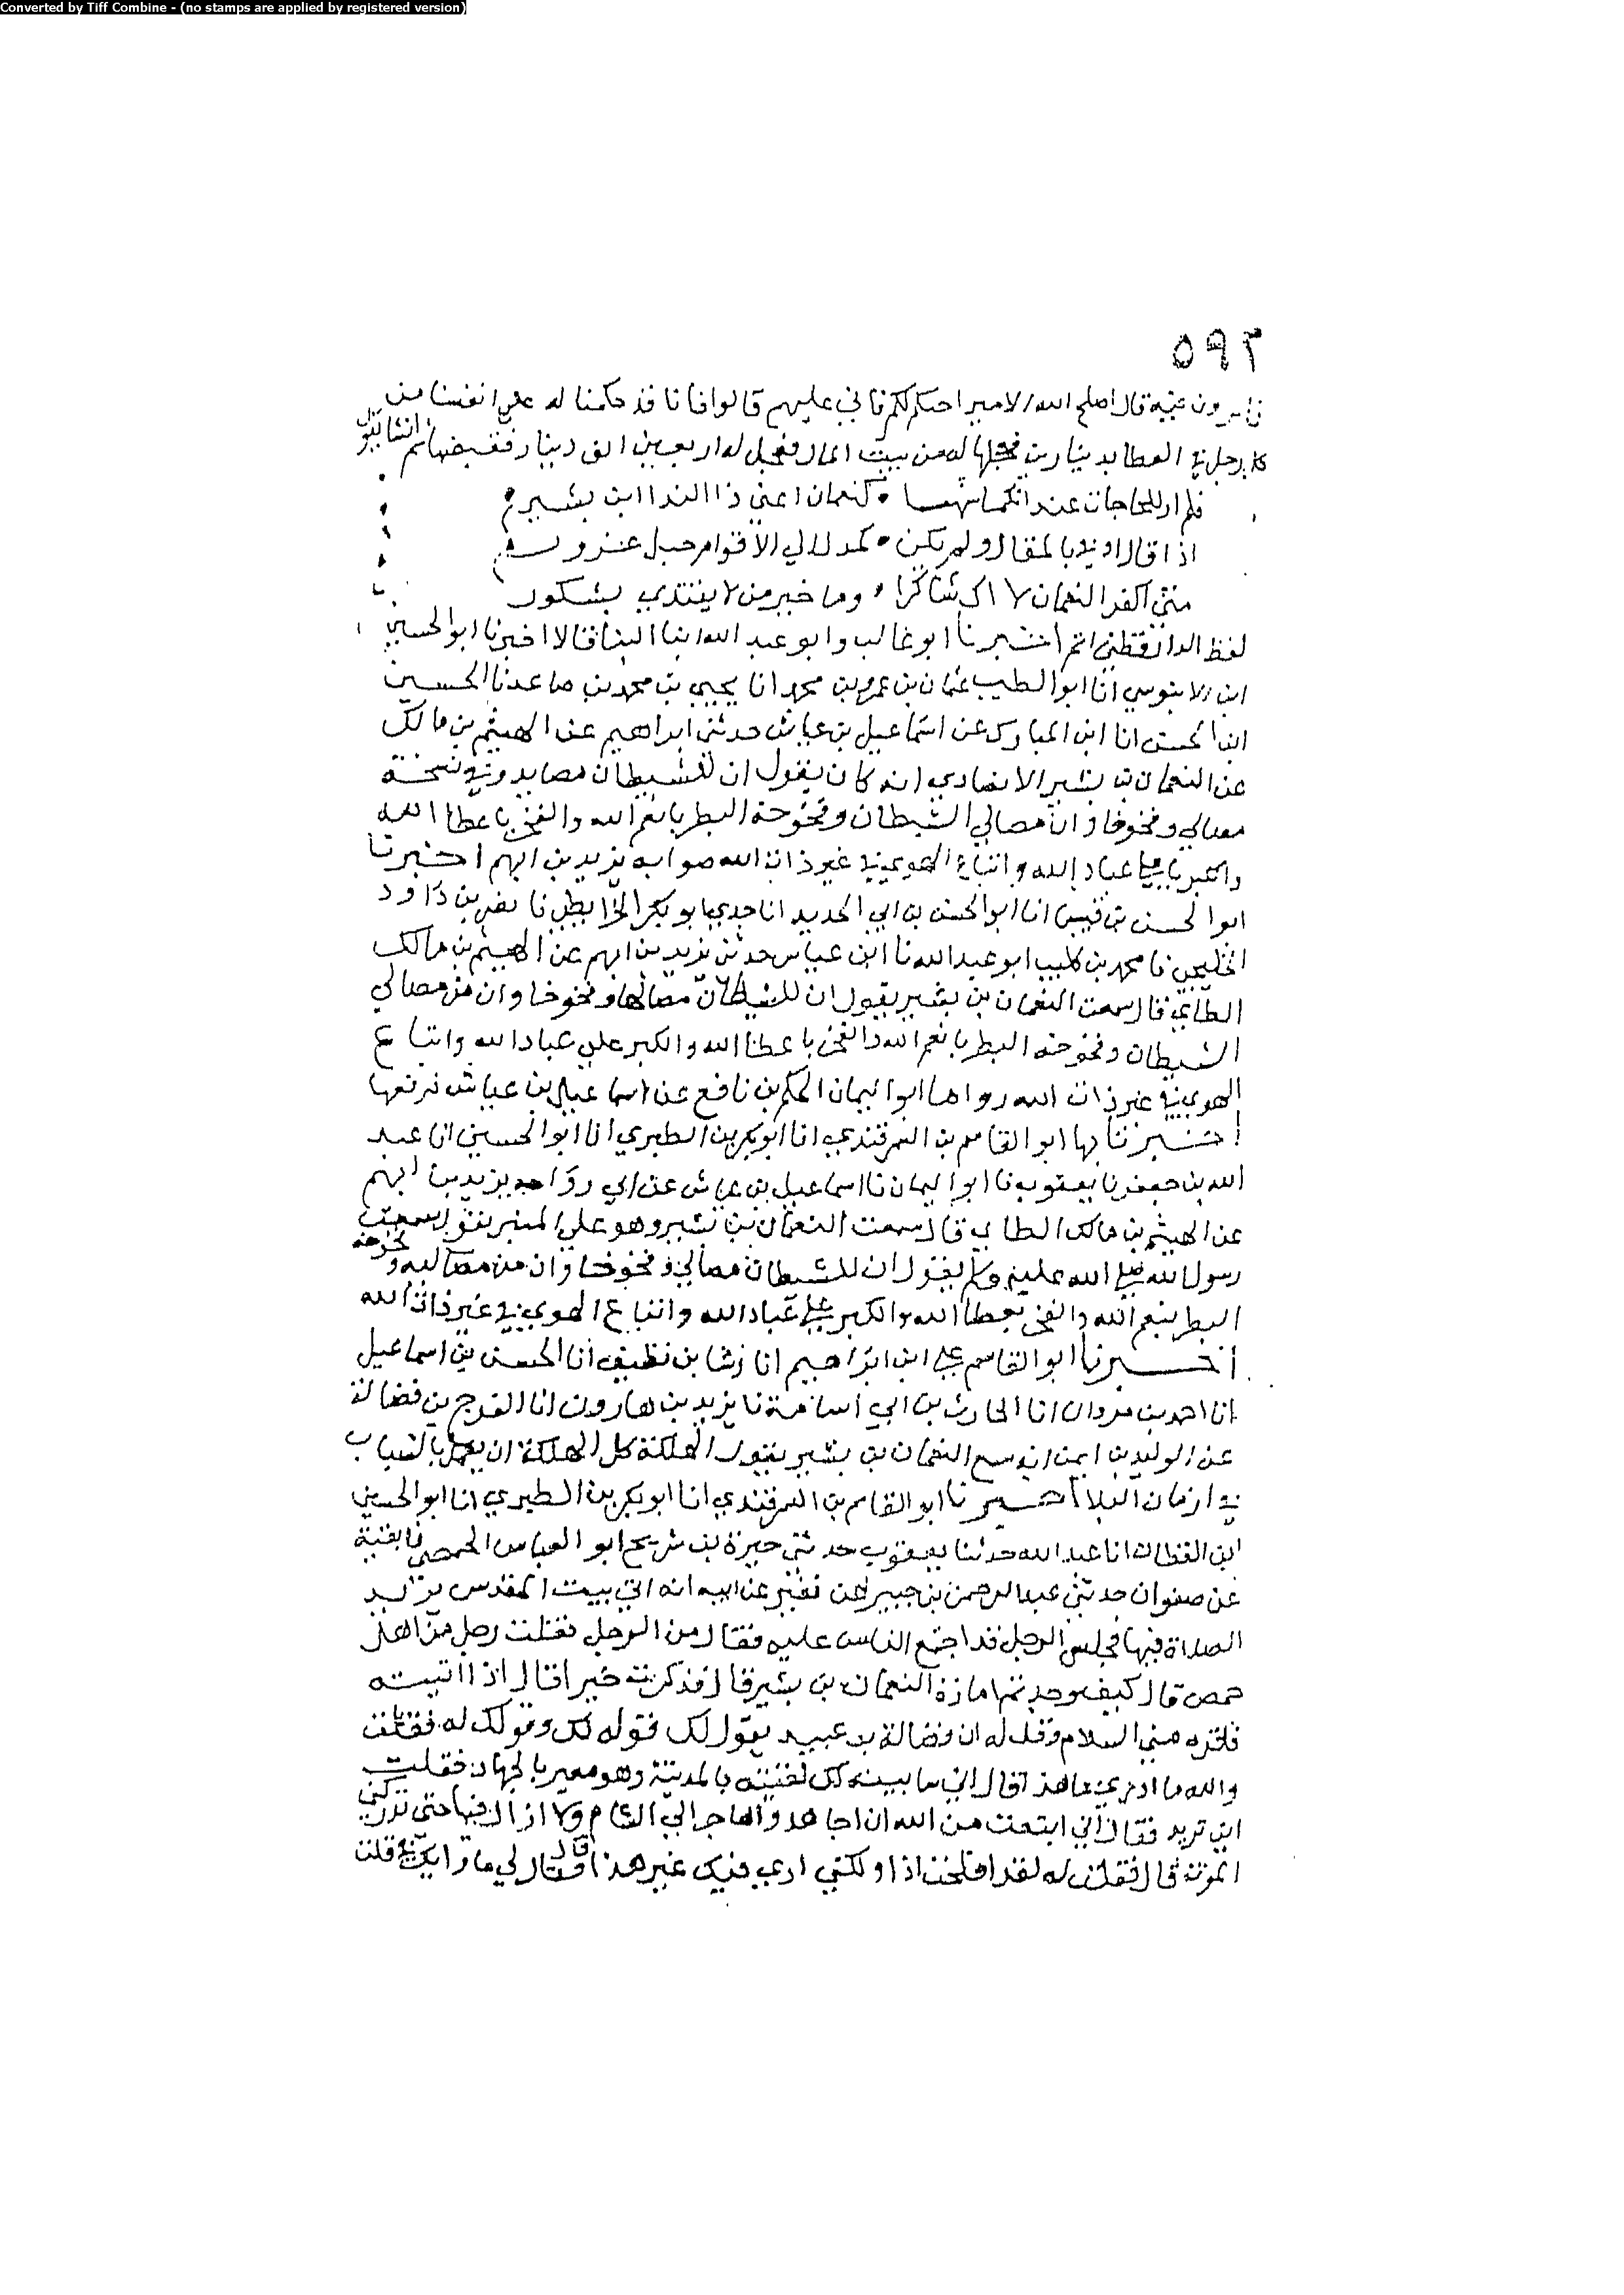 Converted by Tiff Combine - (no stamps are applied by registered version)
٥٩٣
قال اصلح الله الامير احتكم لكم فاني عليهم قالوا فانا قد حكمنا له على انفسنا من
كل رجل في العطا بدينارين فعجلها له من بيت المال فعجل له اربعين الف دينار فقبضها ثم انشا يقول
فلم ار للحاجات عند انكماشها كنعمان اعني ذا الندا ابن بشير
اذا قال اوفى بالمقال ولم يكن كمدل الى الاقوام حبل غرور
متى اكفر النعمان لا اك شاكرا وما خير من لا يقتدي بشكور
لفظ الدارقطني ثم اخبرنا ابو غالب وابو عبد الله ابنا البنا قالا اخبرنا ابو الحسين
ابن الابنوسي انا ابو الطيب عثمان بن عمرو بن محمد انا يحيى بن محمد بن صاعد نا الحسين
ابن الحسن انا ابن المبارك عن اسماعيل بن عياش حدثني ابراهيم عن الهيثم بن مالك
عن النعمان بن بشير الانصاري انه كان يقول ان للشيطان مصايد وفي نسخة
مصالي وفخوخا وان مصالي الشيطان وفخوخه البطر بانعم الله والفخر باعطا الله
والكبريا على عباد الله واتباع الهوى في غير ذات الله صوابه يزيد بن ايهم اخبرنا
ابو الحسن بن قبيس انا ابو الحسن بن ابي الحديد انا جدي ابو بكر الخرايطي نا نصر بن داود
الخليجي نا محمد بن كليب ابو عبد الله نا ابن عياس حدثني يزيد بن ايهم عن الهيثم بن مالك
الطايي قال سمعت النعمان بن بشير يقول ان للشيطان مصالي وفخوخا وان من مصالي
الشيطان وفخوخه البطر بانعم الله والفخر باعطا الله والكبر على عباد الله واتباع
الهوى في غير ذات الله رواها ابو اليمان الحكم بن نافع عن اسماعيل بن عياش فرفعها
اخبرنا بها ابو القاسم بن السمرقندي انا ابو بكر بن الطبري انا ابو الحسين انا عبد
الله بن جعفر نا يعقوب نا ابو اليمان نا اسماعيل بن عياش عن ابي رواحه يزيد بن ايهم
عن الهيثم بن مالك الطايي قال سمعت النعمان بن بشير وهو على المنبر يقول سمعت
رسول الله صلى الله عليه وسلم يقول ان للشيطان مصالي وفخوخا وان من مصاليه وفخوخه
البطر بنعم الله والفخر بعطا الله والكبر على عباد الله واتباع الهوى في غير ذات الله
اخبرنا ابو القاسم علي ابن ابراهيم انا رشا بن نظيف انا الحسن بن اسماعيل
انا احمد بن مروان انا الحارث بن ابي اسامة نا يزيد بن هارون انا الفرج بن فضالة
عن الوليد بن ايمن انه سمع النعمان بن بشير يقول الهلكة كل الهلكة ان يعمل بالسيات
في ازمان البلا اخبرنا ابو القاسم بن السمرقندي انا ابو بكر بن الطبري انا ابو الحسين
ابن القطان انا عبد الله حدثنا يعقوب حدثني حيوة بن شريح ابو العباس الحمصي نا بقية
عن صفوان حدثني عبد الرحمن بن جبير بن نفير عن ابيه انه اتى بيت المقدس يريد
الصلاة فيها فجلس الى رجل قد اجتمع الناس عليه فقال من الرجل فقلت رجل من اهل
حمص قال كيف وجدتم امارة النعمان بن بشير قال فذكرت خيرا قال اذا اتيته
فاقره مني السلام وقل له ان فضالة بن عبيد يقول لك قوله لك وقولك له فقلت
والله ما ادري ما هذا قال اني سابينه لك لقيته بالمدينة وهو معبر بالجهاز فقلت
اين تريد فقال اني ابتعت من الله ان اجاهد واهاجر الى الشام ولا ازال فيها حتى يدركني
الموت قال فقلت له لقد افلحت اذا ولكني ارى فيك غير هذا قال فقال لي ما ترى في قلت